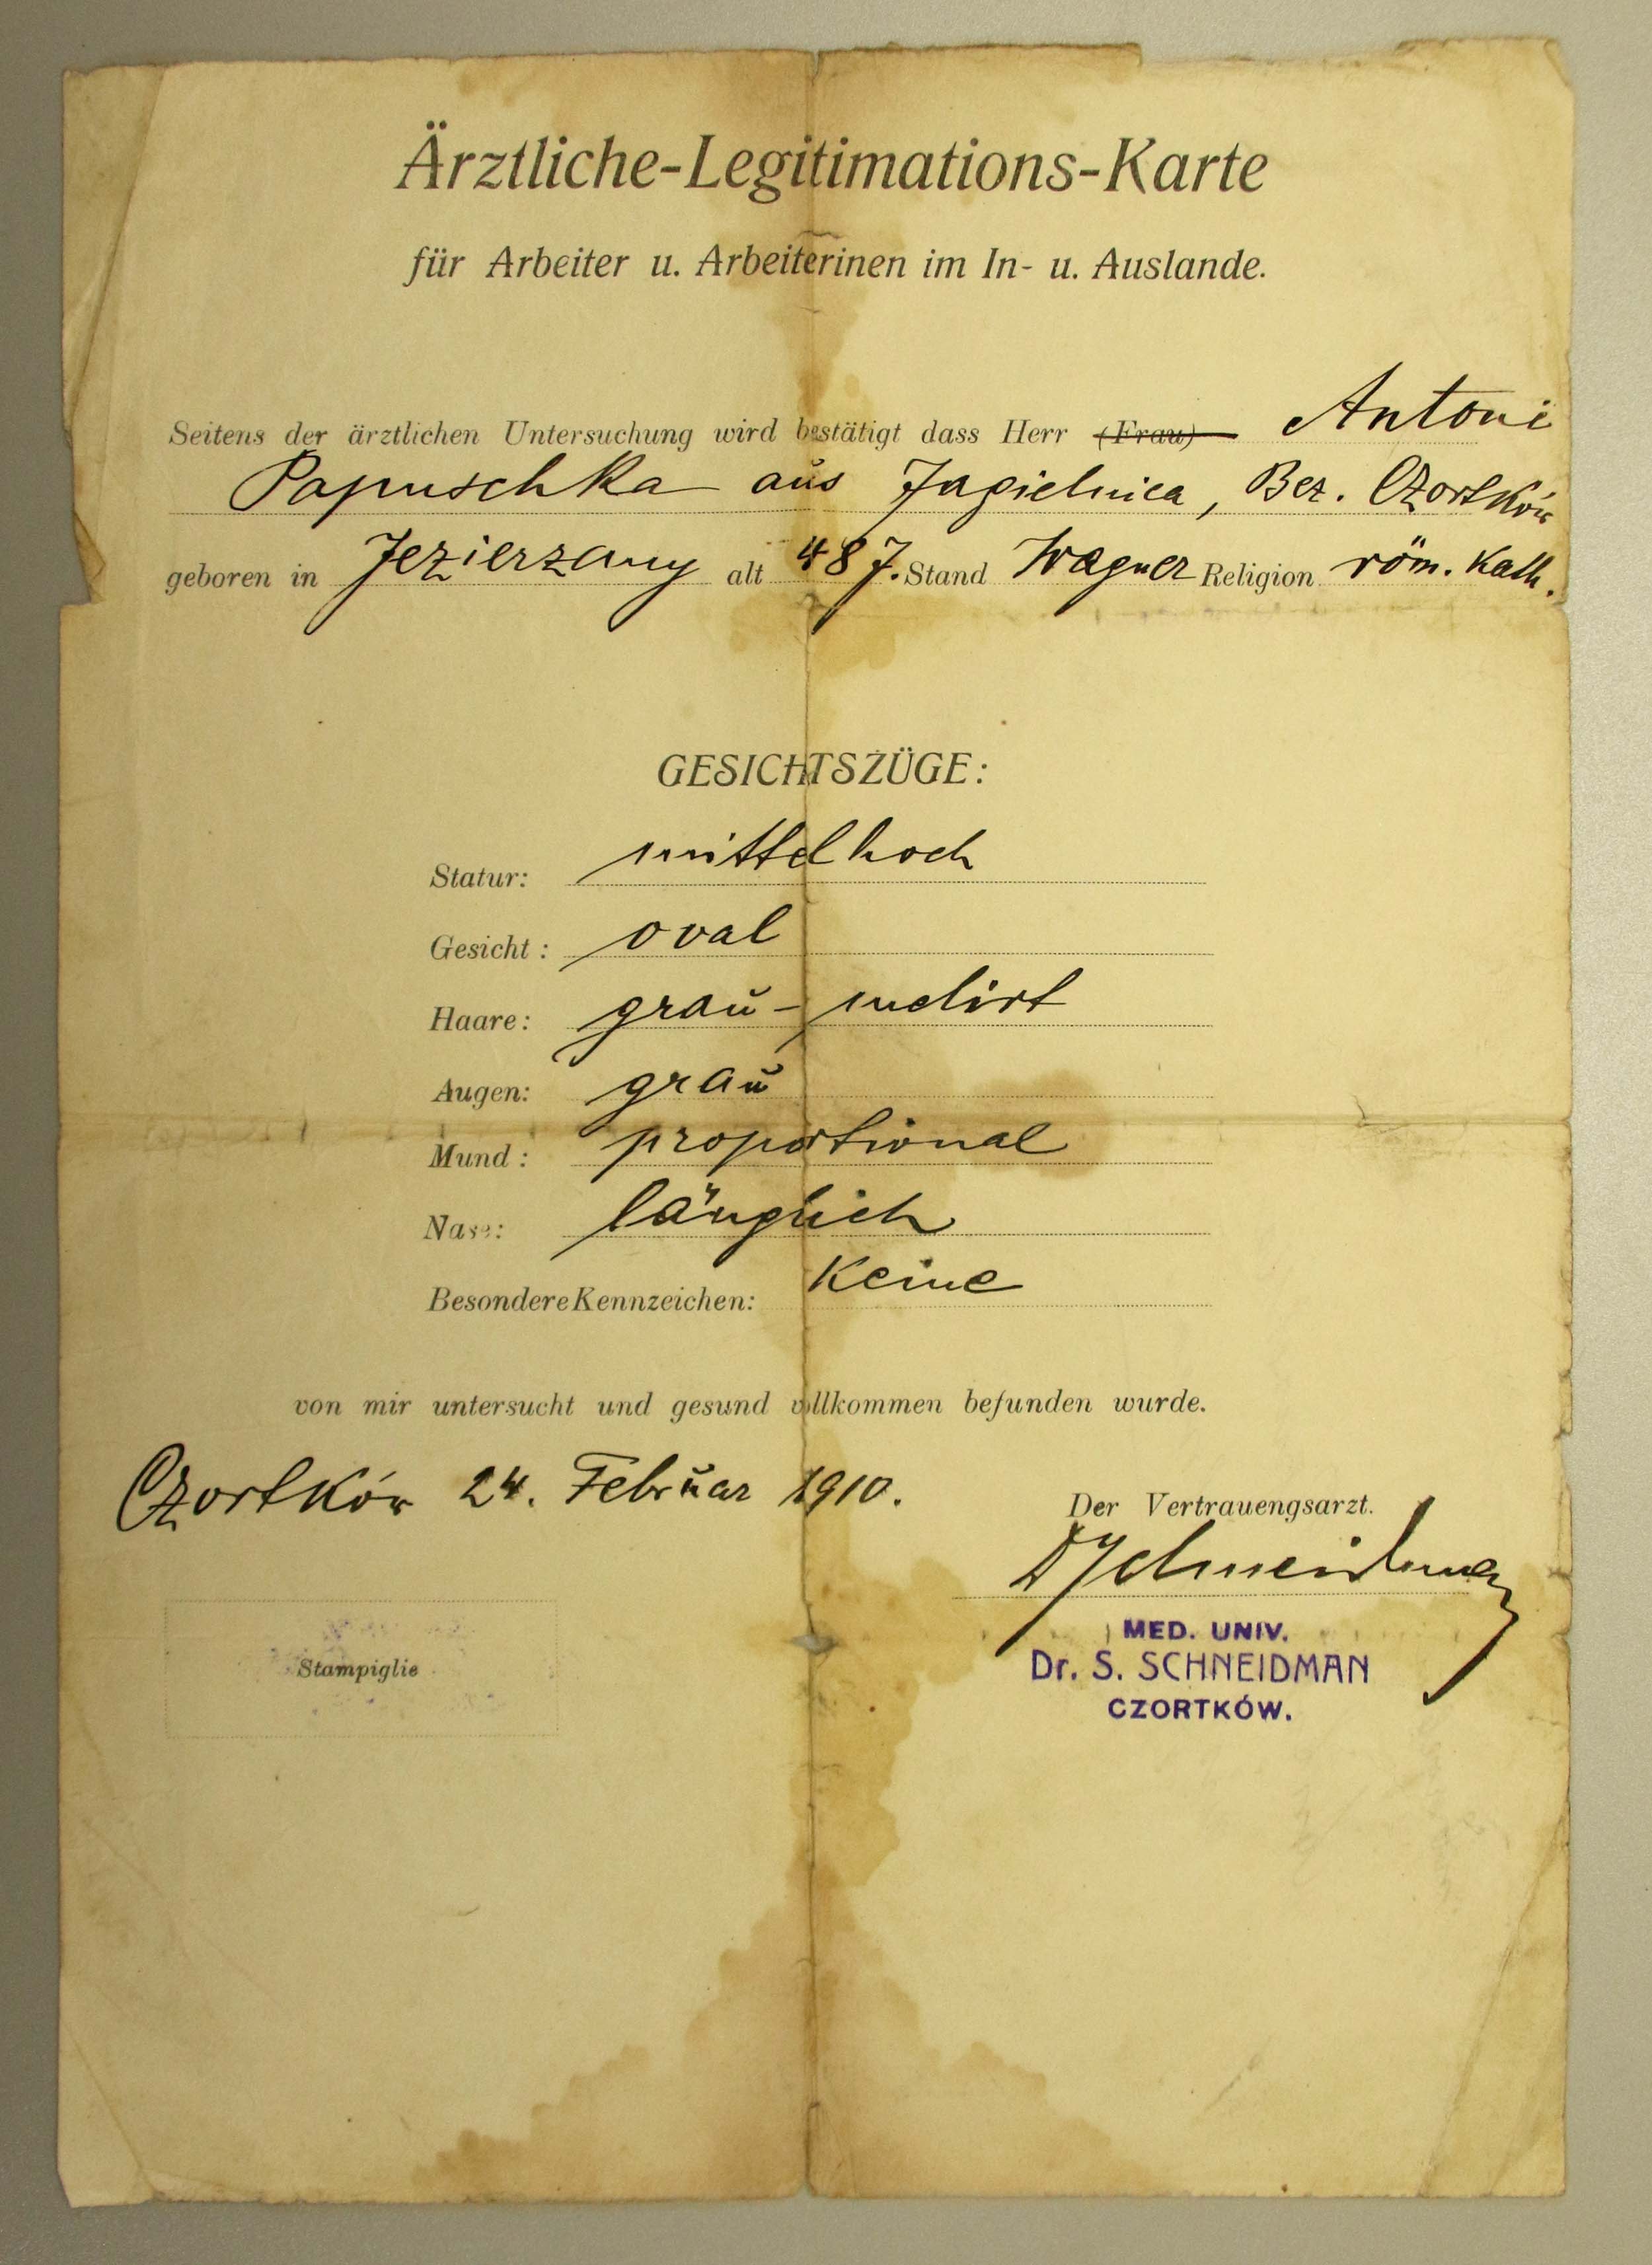 Ärztliche-Legitimations-Karte
für Arbeiter u. Arbeiterinen im In- u. Auslande.
Seitens der ärztlichen Untersuchung wird bestätigt dass Herr (Frau) Antoni
Papuschka aus Jagielnica, Bez. Czortków
geboren in Jezierzany alt 48 J. Stand Wagner Religion röm. Kath.
GESICHTSZÜGE:
Statur: mittelhoch
Gesicht: oval
Haare: grau-melirt
Augen: grau
Mund: proportional
Nase: länglich
Besondere Kennzeichen: Keine
von mir untersucht und gesund vollkommen befunden wurde.
Czortków 24. Februar 1910.
Der Vertrauengsarzt.
DSchneidman
Stampiglie
MED. UNIV.
Dr. S. SCHNEIDMAN
CZORTKÓW.